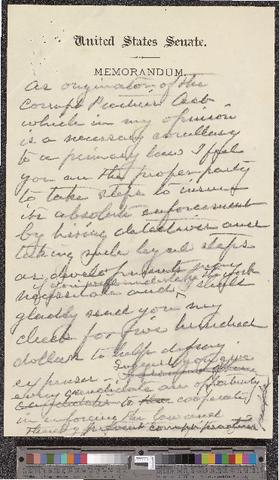 United States Senate.
MEMORANDUM.
As originator of the
Corrupt Practices Act
which in my opinion
is a necessary corollary
to a primary law I feel
you are the proper party
to take steps to insure
its absolute enforcement
by hiring detectives and
taking such legal steps
as developments may
necessitate and
if you will undertake the work
I shall
gladly send you my
check for five hundred
dollars to help defray
expenses. I
suggest you give
every candidate an opportunity
to cooperate
in enforcing the law and
thereby prevent corrupt practices